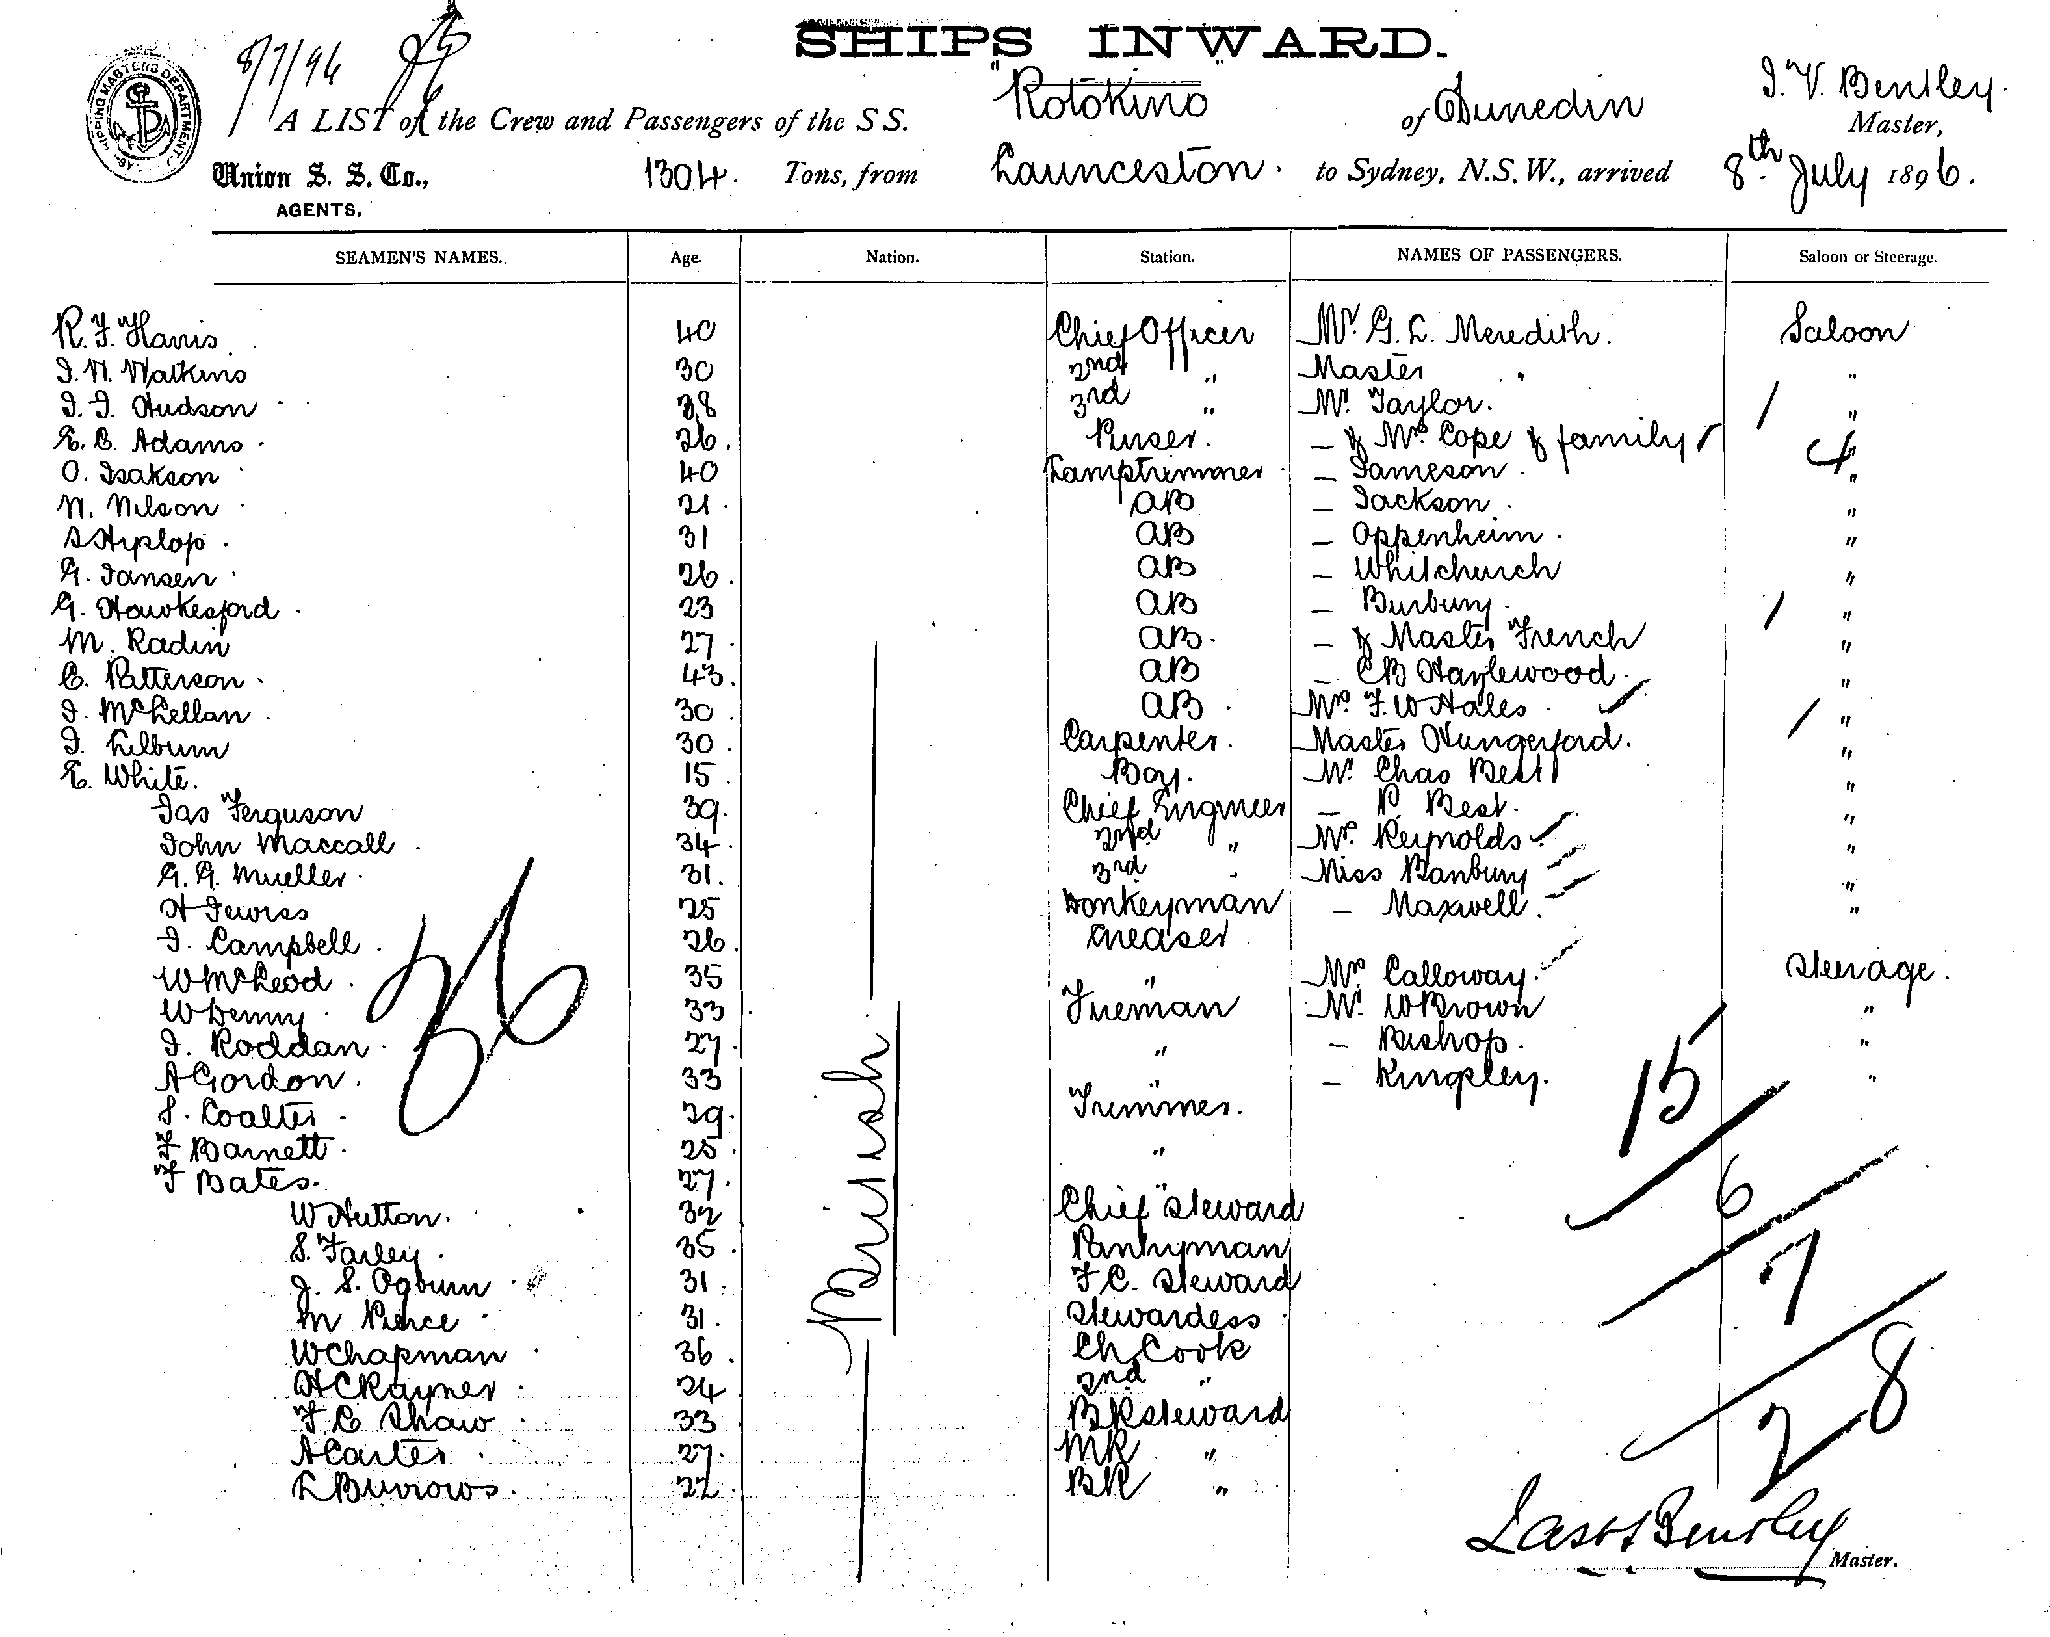 SHIPS INWARD.
8/7/96
A LIST of the Crew and Passengers of the S S. "Rotokino of Dunedin J. V. Bentley. Master,
Union S. S. Co., 1304. Tons, from Launceston. to Sydney, N.S.W., arrived 8th July 1896.
AGENTS.
SEAMEN'S NAMES. Age. Nation. Station. NAMES OF PASSENGERS. Saloon or Steerage.
R. F. Harris 40 Chief Officer Mr. G. L. Meredith. Saloon
J. W. Watkins 30 2nd " Master " "
J. J. Hudson 38 3rd " Mr. Taylor. 1 "
E. C. Adams 26. Purser. — & Mrs Cope & family 4 "
O. Isakson 40 Lamptrimmer — Jameson. "
N. Nilson 21. AB — Jackson. "
31 AB — Oppenheim. "
G. Jansen 26. AB — Whitchurch "
G. Hawkesford 23 AB — Burbury. 1 "
M. Radin 27. AB. — & Master French "
C. Patterson 43. AB — CB Haylewood. "
J. McLellan 30. AB. Mrs. F. W Hales "
J. Lilburn 30. Carpenter. Master Hungerford. 1 "
E. White. 15 Boy. Mr. Chas Best "
Jas Ferguson 39. Chief Engineer — P. Best. "
John Maccall 34. 2nd " Mrs. Reynolds "
G. G. Mueller. 31. 3rd " Miss Banbury "
25 Donkeyman — Maxwell. "
J. Campbell 26. Greaser
W McLeod 35 " Mrs. Calloway. Steerage.
W Denny 33 Fireman Mr. W Brown "
J. Roddan 27. " — Bishop. "
A Gordon. 33 " — Kingsley. "
S. Coalter 29. Trimmer.
Barnett 25 "
F Bates. 27. "
W Hutton. 32 Chief Steward
S. Farley. 35 Pantryman
J. S. Ogburn 31 F C. Steward
M Pierce 31. Stewardess
W Chapman 36. Ch Cook
H C Rayner 24 2nd "
F. C Shaw 33 BK Steward
A Carter 27. MR "
L Burrows. 22. BR "
36
British
15
6
7
28
Bentley
Master.